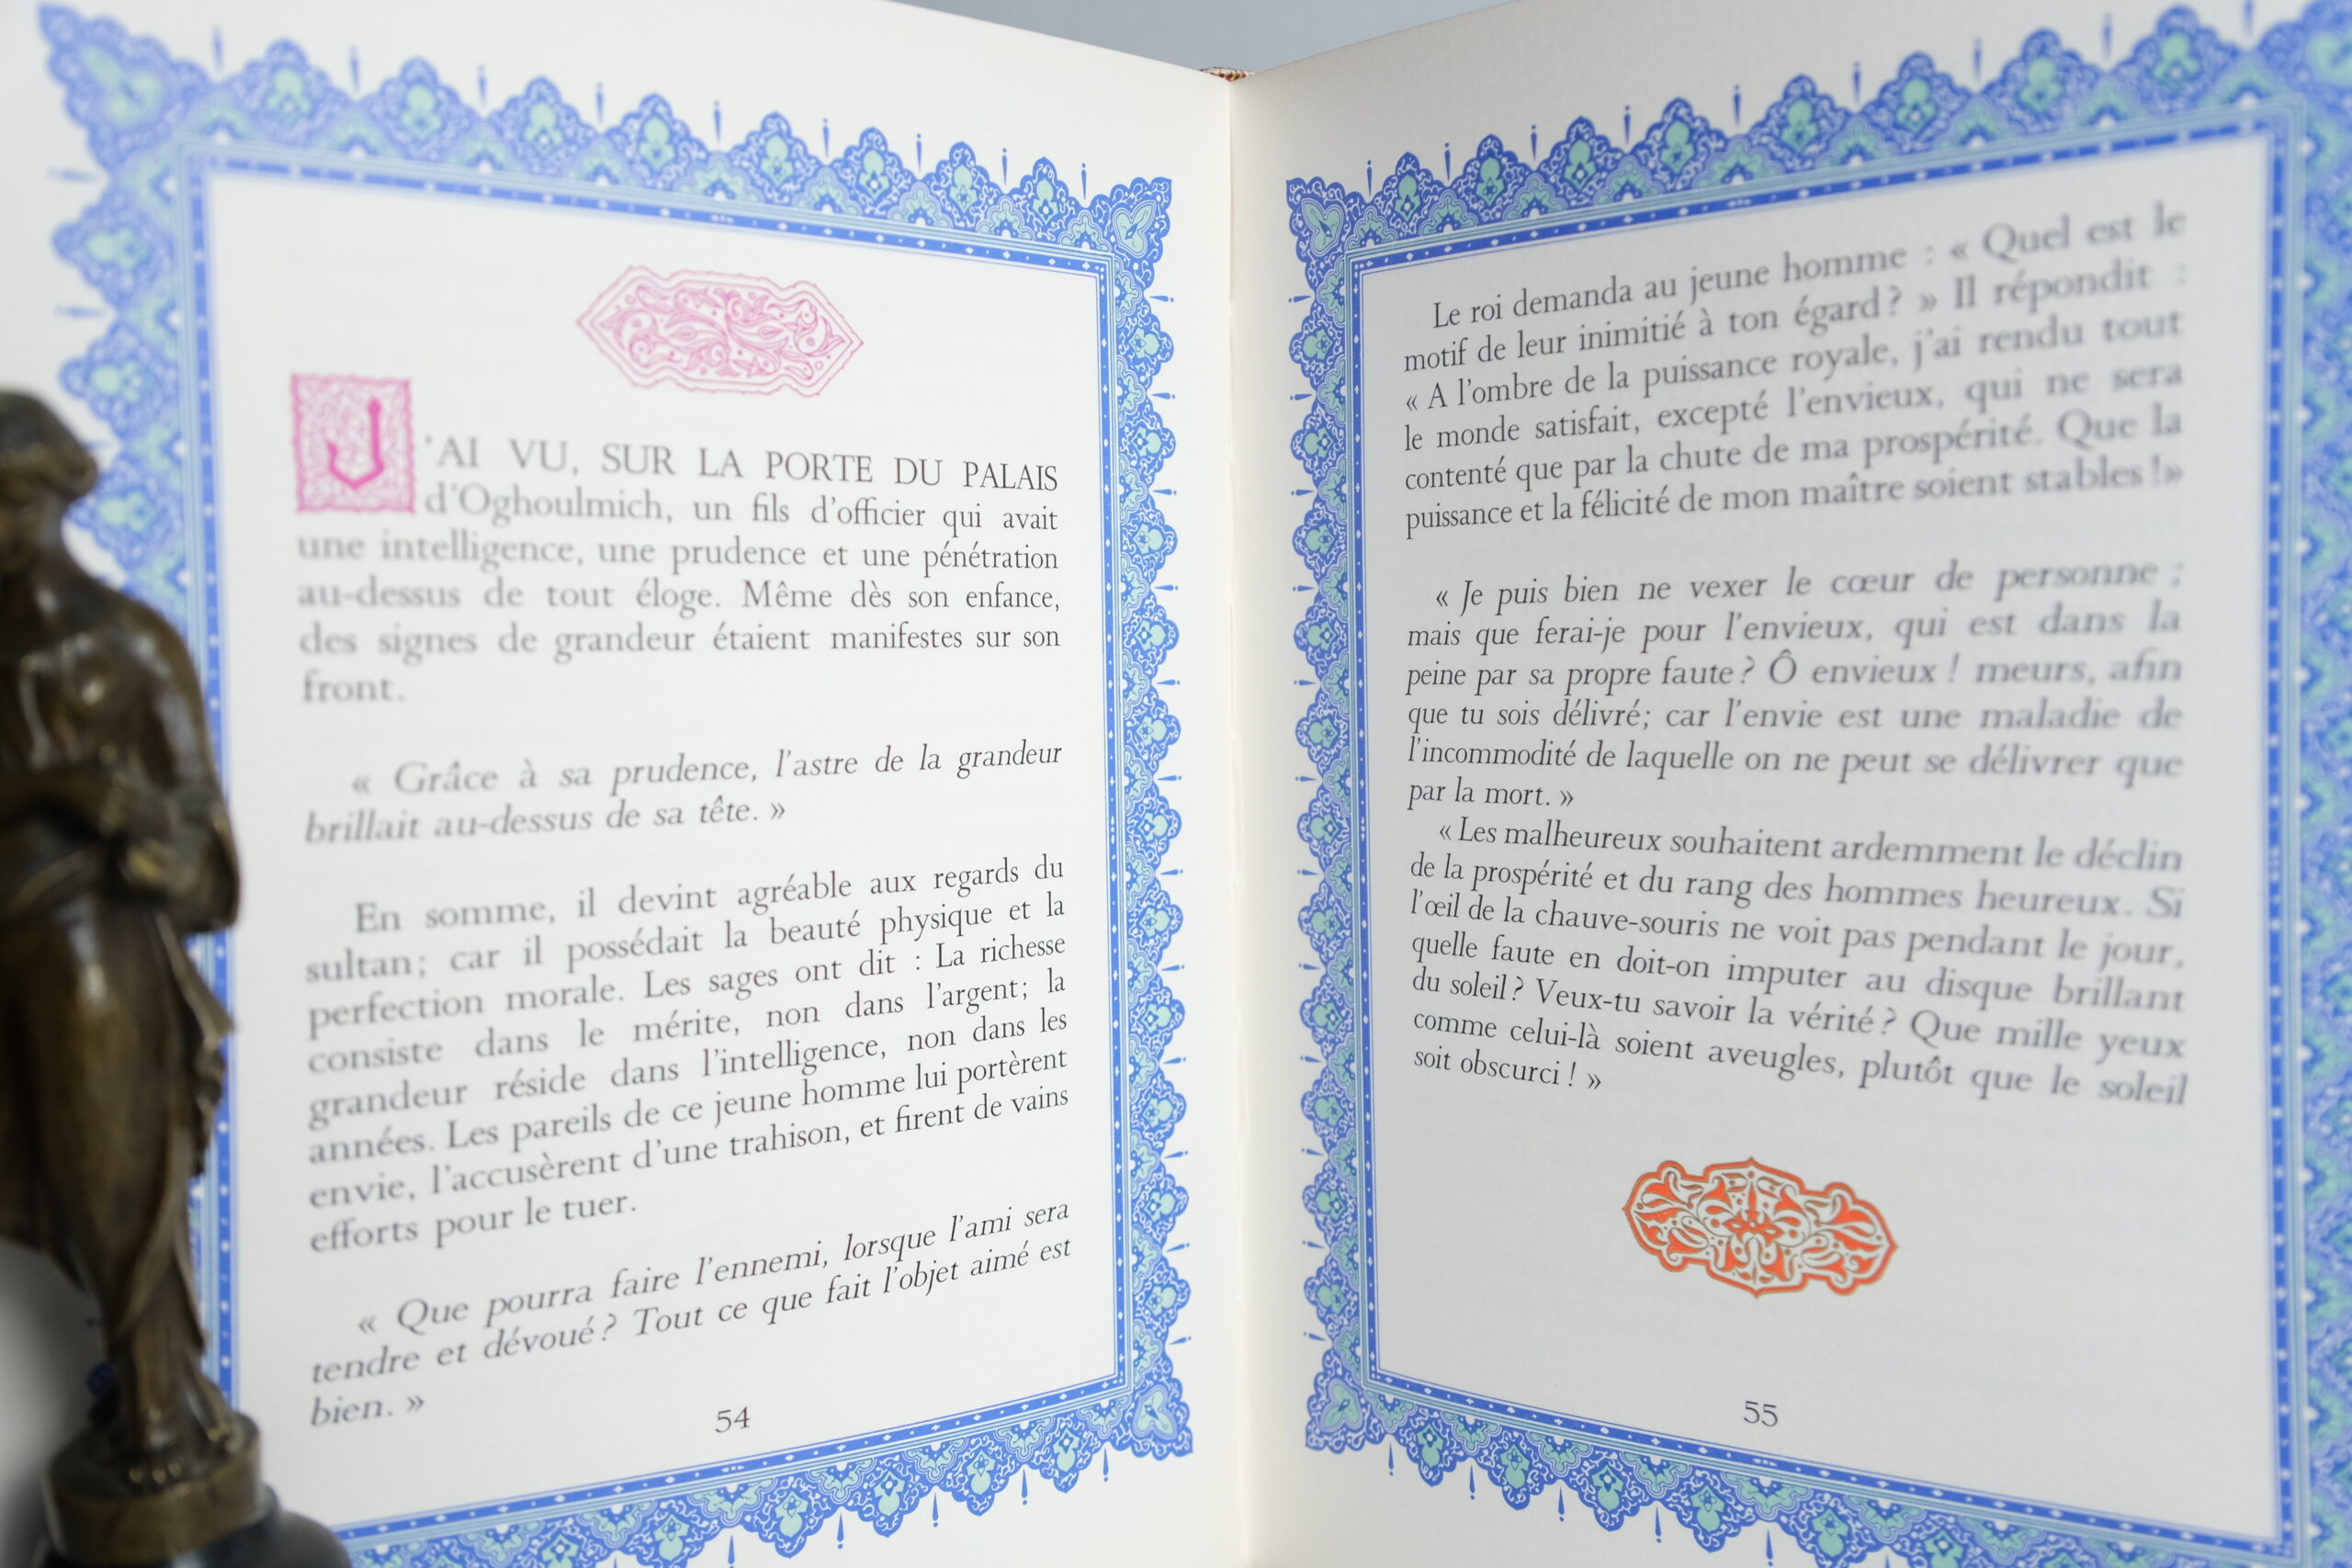 J'AI VU, SUR LA PORTE DU PALAIS
d'Oghoulmich, un fils d'officier qui avait
une intelligence, une prudence et une pénétration
au-dessus de tout éloge. Même dès son enfance,
des signes de grandeur étaient manifestes sur son
front.
« Grâce à sa prudence, l'astre de la grandeur
brillait au-dessus de sa tête. »
En somme, il devint agréable aux regards du
sultan; car il possédait la beauté physique et la
perfection morale. Les sages ont dit : La richesse
consiste dans le mérite, non dans l'argent; la
grandeur réside dans l'intelligence, non dans les
années. Les pareils de ce jeune homme lui portèrent
envie, l'accusèrent d'une trahison, et firent de vains
efforts pour le tuer.
« Que pourra faire l'ennemi, lorsque l'ami sera
tendre et dévoué? Tout ce que fait l'objet aimé est
bien. »
54
Le roi demanda au jeune homme : « Quel est le
motif de leur inimitié à ton égard? » Il répondit :
« A l'ombre de la puissance royale, j'ai rendu tout
le monde satisfait, excepté l'envieux, qui ne sera
contenté que par la chute de ma prospérité. Que la
puissance et la félicité de mon maître soient stables !»
« Je puis bien ne vexer le cœur de personne ;
mais que ferai-je pour l'envieux, qui est dans la
peine par sa propre faute? Ô envieux ! meurs, afin
que tu sois délivré; car l'envie est une maladie de
l'incommodité de laquelle on ne peut se délivrer que
par la mort. »
« Les malheureux souhaitent ardemment le déclin
de la prospérité et du rang des hommes heureux. Si
l'œil de la chauve-souris ne voit pas pendant le jour,
quelle faute en doit-on imputer au disque brillant
du soleil? Veux-tu savoir la vérité? Que mille yeux
comme celui-là soient aveugles, plutôt que le soleil
soit obscurci ! »
55